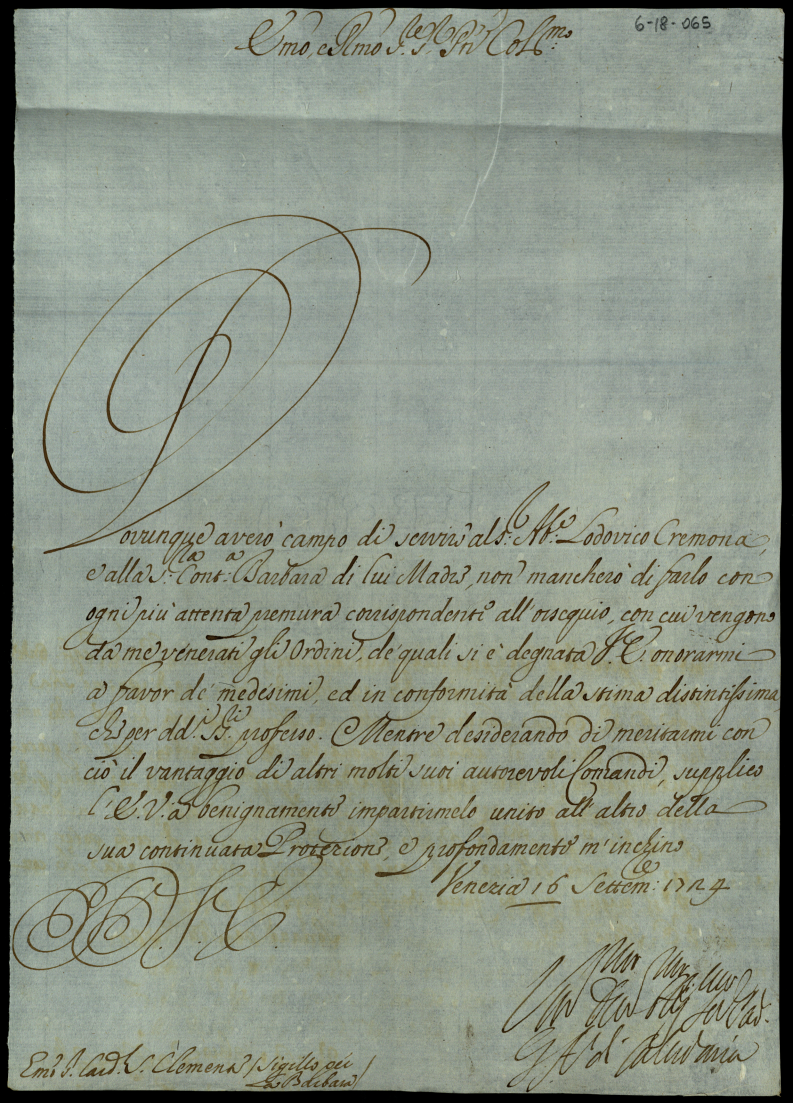 6-18-065
Emo, e Rmo S.re S.r Pñ Col.mo
Dovunque averò campo di servire al S.r Ab.e Lodovico Cremona,
e alla S.ra Cont.a Barbara di lui Madre, non mancherò di farlo con
ogni più attenta premura corrispondente all'ossequio, con cui vengono
da me venerati gli Ordini, de' quali si è degnata V.E. onorarmi
a favor de' medesimi, ed in conformità della stima distintissima,
che per dd.i SS.ri professo. Mentre desiderando di meritarmi con
ciò il vantaggio di altri molti suoi autorevoli Comandi, supplico
l'E.V. a benignamente impartirmelo unito all'altro della
sua continuata Protezione, e profondamente m'inchino
Venezia 16 Settem.e 1724
V.E.
Emo S. Card.l S. Clemente / Sigillo